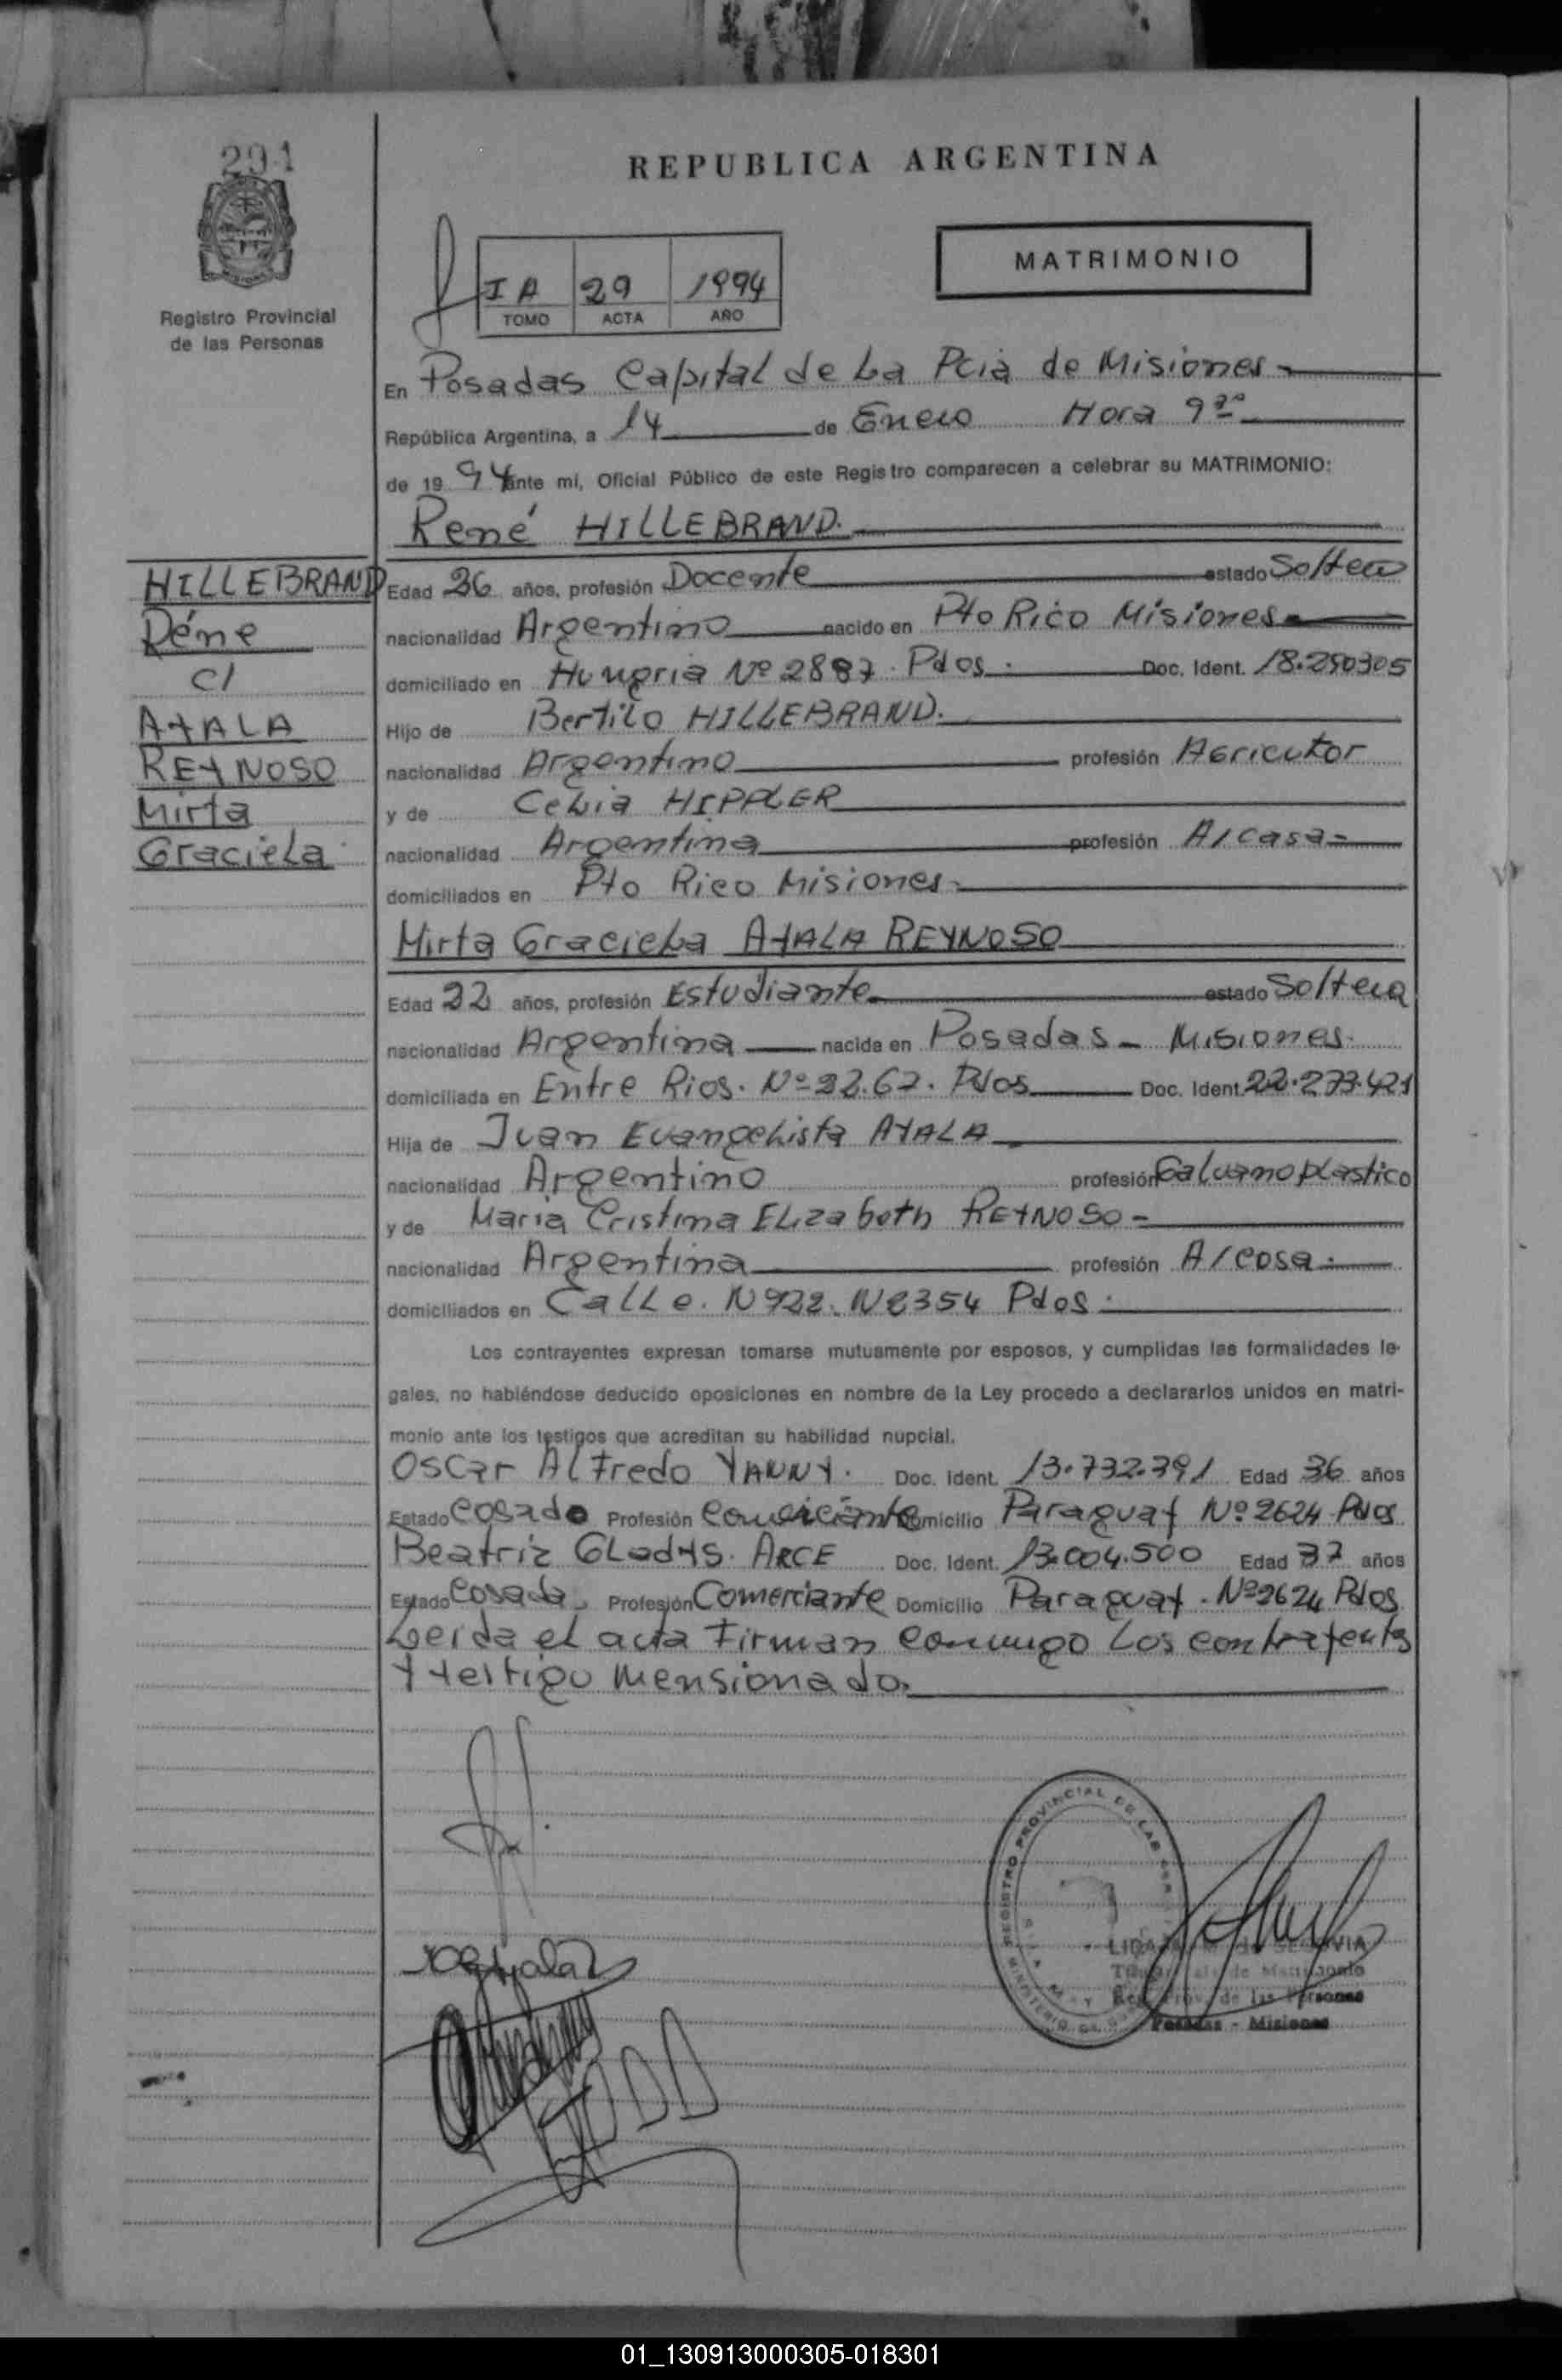 291
REPUBLICA ARGENTINA
MATRIMONIO
IA 29 1994
TOMO ACTA AÑO
Registro Provincial
de las Personas
En Posadas Capital de La Pcia de Misiones
República Argentina, a 14 de Enero Hora 9
de 1994 ante mi, Oficial Público de este Registro comparecen a celebrar su MATRIMONIO:
René HILLEBRAND.
HILLEBRAND
Réne
C/
AYALA
REYNOSO
Mirta
Graciela
Edad 26 años, profesión Docente estado Soltero
nacionalidad Argentino nacido en Pto Rico Misiones
domiciliado en Hungria Nº 2887. Pdos. Doc. Ident. 18.250305
Hijo de Bertilo HILLEBRAND.
nacionalidad Argentino profesión Agricutor
y de Celia HIPPLER
nacionalidad Argentina profesión A/casa
domiciliados en Pto Rico Misiones
Mirta Graciela AYALA REYNOSO
Edad 22 años, profesión Estudiante estado Soltera
nacionalidad Argentina nacida en Posadas - Misiones.
domiciliada en Entre Rios. Nº 32.67. Pdos Doc. Ident. 22.273.421
Hija de Juan Evangelista AYALA
nacionalidad Argentino profesión Galvanoplastico
y de Maria Cristina Elizabeth REYNOSO
nacionalidad Argentina profesión A/casa.
domiciliados en Calle. Nº22. Nº354 Pdos.
Los contrayentes expresan tomarse mutuamente por esposos, y cumplidas las formalidades le-
gales, no habiéndose deducido oposiciones en nombre de la Ley procedo a declararlos unidos en matri-
monio ante los testigos que acreditan su habilidad nupcial.
Oscar Alfredo YANNY. Doc. Ident. 13.732.391 Edad 36 años
Estado Casado Profesión Comerciante Domicilio Paraguay Nº 2624 Pdos
Beatriz Gladys. ARCE Doc. Ident. 13.004.500 Edad 37 años
Estado Casada. Profesión Comerciante Domicilio Paraguay. Nº2624 Pdos
Leida el acta Firman conmigo Los contrayents
y testigo mensionado.
REGISTRO PROVINCIAL DE LAS
MINISTERIO DE
de SEGOVIA
de Matrimonio
Reg. Prov. de las Personas
Posadas - Misiones
01_130913000305-018301